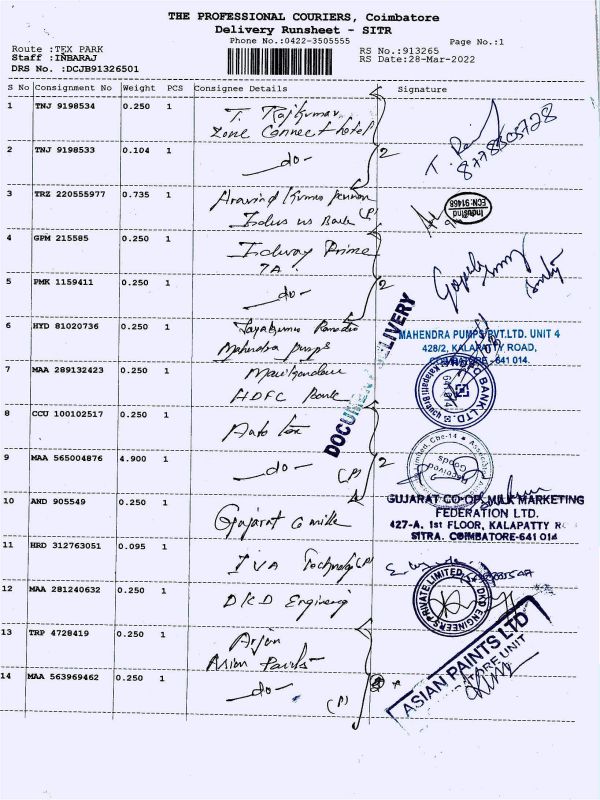 THE PROFESSIONAL COURIERS, Coimbatore
Delivery Runsheet - SITR
Phone No.:0422-3505555
Page No.:1
Route :TEX PARK
RS No.:913265
Staff :INBARAJ
RS Date:28-Mar-2022
DRS No. :DCJB91326501
S No Consignment No Weight PCS Consignee Details Signature
1 TNJ 9198534 0.250 1 T. Rajkumar
Zone Connect hotel
2 TNJ 9198533 0.104 1 -do- 2
T.
3 TRZ 220555977 0.735 1 Aravind Kumar
Indus us Bank (P)
IndusInd
ECN: 91468
4 GPM 215585 0.250 1 Prime
7A.
5 PMK 1159411 0.250 1 -do- 2
6 HYD 81020736 0.250 1
Mahendra Pumps
DOCUMENT DELIVERY
MAHENDRA PUMPS PVT.LTD. UNIT 4
428/2, KALAPATTY ROAD,
COIMBATORE - 641 014.
7 MAA 289132423 0.250 1 Manikandan
HDFC Bank
BANK LTD.
8 CCU 100102517 0.250 1 Auto Tex
9 MAA 565004876 4.900 1 -do- (P) 2
Limited, Cbe-14
Received
Goods
10 AND 905549 0.250 1 Gujarat Co milk
GUJARAT CO-OP. MILK MARKETING
FEDERATION LTD.
427-A, 1st FLOOR, KALAPATTY
SITRA, COIMBATORE-641 014
11 HRD 312763051 0.095 1 IVA Technology (P)
12 MAA 281240632 0.250 1 DKD Engineering
DKD ENGINEERS PRIVATE LIMITED
13 TRP 4728419 0.250 1 Arjun
Asian Paints
14 MAA 563969462 0.250 1 -do- (P)
ASIAN PAINTS LTD
UNIT